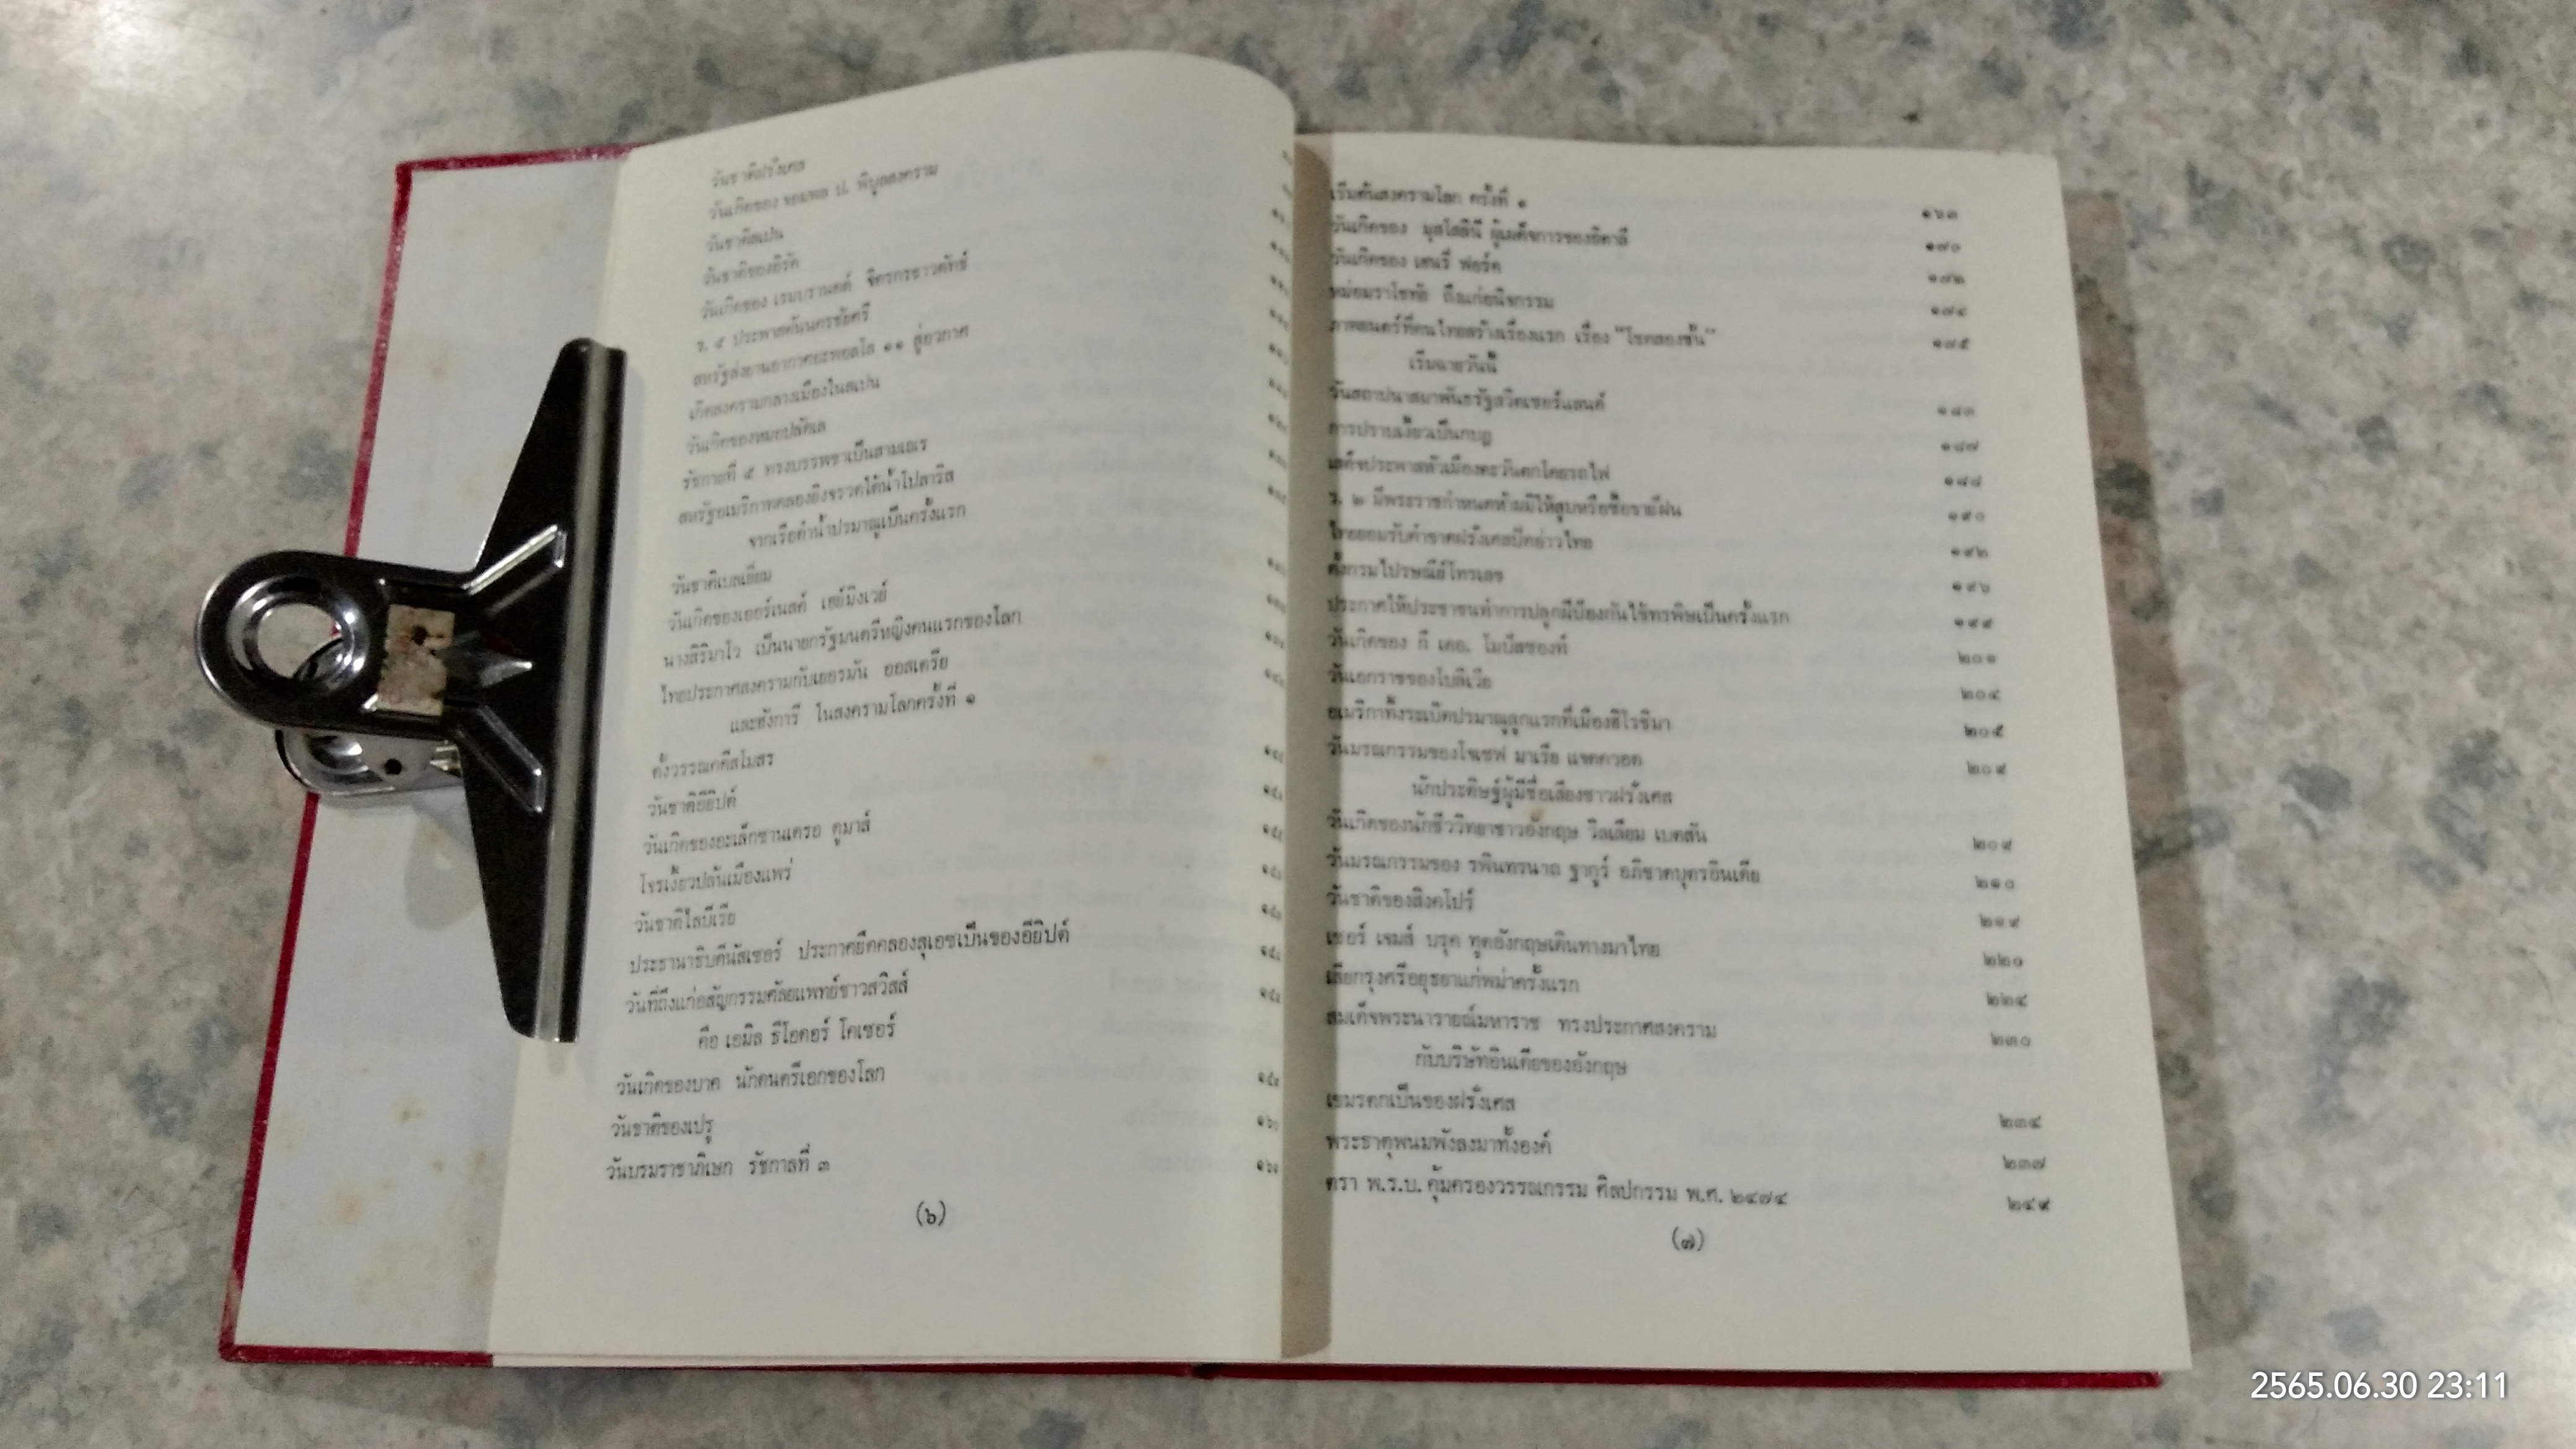 วันชาติฝรั่งเศส
วันเกิดของ จอมพล ป. พิบูลสงคราม
วันชาติสเปน
วันชาติของอิรัค
วันเกิดของ เรมบรานดต์ จิตรกรชาวดัทช์
ร. ๕ ประพาสต้นนครชัยศรี
สหรัฐส่งยานอวกาศอะพอลโล ๑๑ สู่อวกาศ
เกิดสงครามกลางเมืองในสเปน
วันเกิดของหมอปลัดเล
รัชกาลที่ ๕ ทรงบรรพชาเป็นสามเณร
สหรัฐอเมริกาทดลองยิงจรวดใต้น้ำโปลาริส
จากเรือดำน้ำปรมาณูเป็นครั้งแรก
วันชาติเบลเยี่ยม
วันเกิดของเออร์เนสต์ เฮย์มิงเวย์
นางสิริมาโว เป็นนายกรัฐมนตรีหญิงคนแรกของโลก
ไทยประกาศสงครามกับเยอรมัน ออสเตรีย
และฮังการี ในสงครามโลกครั้งที่ ๑
ตั้งวรรณคดีสโมสร
วันชาติอียิปต์
วันเกิดของอะเล็กซานเดรอ ดูมาส์
โจรเงี้ยวปล้นเมืองแพร่
วันชาติไลบีเรีย
ประธานาธิบดีนัสเซอร์ ประกาศยึดคลองสุเอซเป็นของอียิปต์
วันที่ถึงแก่อสัญกรรมศัลยแพทย์ชาวสวิสส์
คือ เอมิล ธีโอดอร์ โคเชอร์
วันเกิดของบาค นักดนตรีเอกของโลก
วันชาติของเปรู ๑๖๐
วันบรมราชาภิเษก รัชกาลที่ ๓
(๖)
เริ่มต้นสงครามโลก ครั้งที่ ๑ ๑๖๓
วันเกิดของ มุสโสลินี ผู้เผด็จการของอิตาลี ๑๗๐
วันเกิดของ เฮนรี่ ฟอร์ด ๑๗๒
หม่อมราโชทัย ถึงแก่อนิจกรรม ๑๗๔
ภาพยนตร์ที่คนไทยสร้างเรื่องแรก เรื่อง "โชคสองชั้น" ๑๗๕
เริ่มฉายวันนี้
วันสถาปนาสมาพันธรัฐสวิตเซอร์แลนด์ ๑๘๓
การปราบเงี้ยวเป็นกบฏ ๑๘๗
เสด็จประพาสหัวเมืองตะวันตกโดยรถไฟ ๑๘๘
ร. ๒ มีพระราชกำหนดห้ามมิให้สูบหรือซื้อขายฝิ่น ๑๙๐
ไทยยอมรับคำขาดฝรั่งเศสปิดอ่าวไทย ๑๙๒
ตั้งกรมไปรษณีย์โทรเลข ๑๙๖
ประกาศให้ประชาชนทำการปลูกฝีป้องกันไข้ทรพิษเป็นครั้งแรก ๑๙๙
วันเกิดของ กี เดอ. โมปัสซองท์ ๒๐๑
วันเอกราชของโบลิเวีย ๒๐๔
อเมริกาทิ้งระเบิดปรมาณูลูกแรกที่เมืองฮิโรชิมา ๒๐๕
วันมรณกรรมของโจเซฟ มาเรีย แจคควอด ๒๐๙
นักประดิษฐ์ผู้มีชื่อเสียงชาวฝรั่งเศส
วันเกิดของนักชีววิทยาชาวอังกฤษ วิลเลียม เบตสัน ๒๐๙
วันมรณกรรมของ รพินทรนาถ ฐากูร์ อภิชาตบุตรอินเดีย ๒๑๐
วันชาติของสิงคโปร์ ๒๑๙
เซอร์ เจมส์ บรุค ทูตอังกฤษเดินทางมาไทย ๒๒๑
เสียกรุงศรีอยุธยาแก่พม่าครั้งแรก ๒๒๔
สมเด็จพระนารายณ์มหาราช ทรงประกาศสงคราม ๒๓๐
กับบริษัทอินเดียของอังกฤษ
เขมรตกเป็นของฝรั่งเศส ๒๓๔
พระธาตุพนมพังลงมาทั้งองค์ ๒๓๗
ตรา พ.ร.บ. คุ้มครองวรรณกรรม ศิลปกรรม พ.ศ. ๒๔๗๔ ๒๔๙
(๗)
2565.06.30 23:11